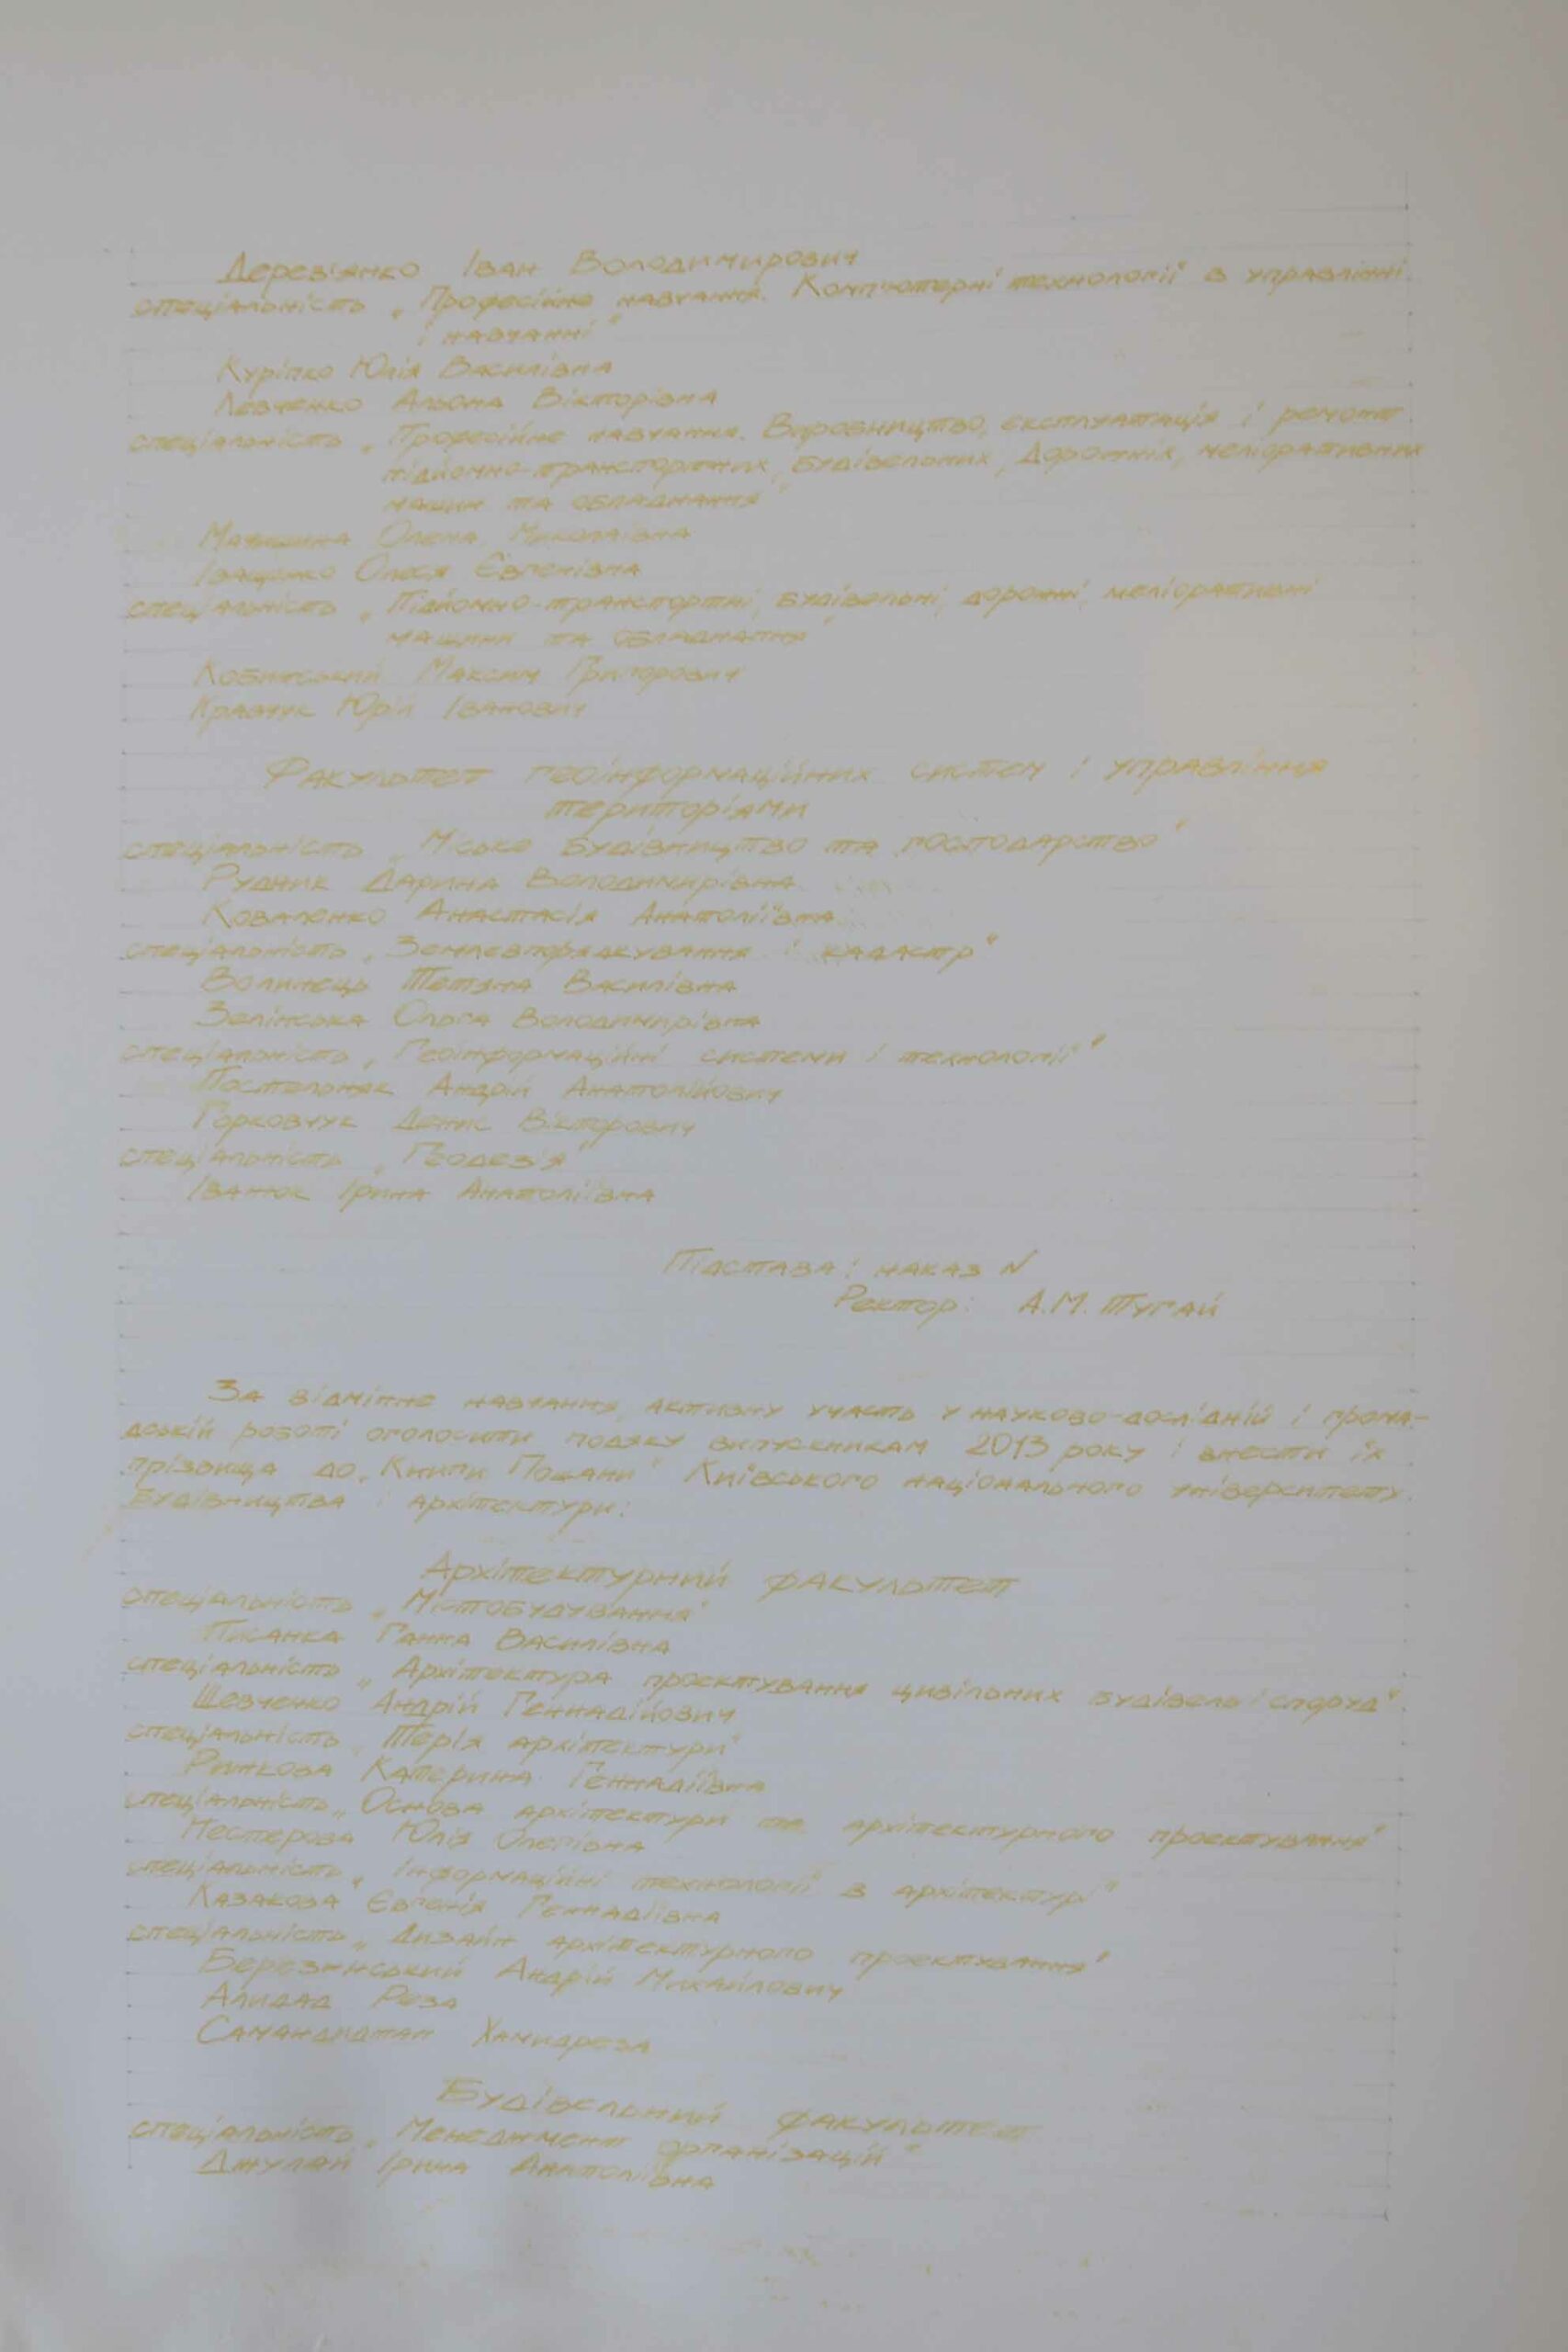 Дерев'янко Іван Володимирович
спеціальність „Професійне навчання. Комп'ютерні технології в управлінні
і навчанні"
Куріпко Юлія Василівна
Левченко Альона Вікторівна
спеціальність „Професійне навчання. Виробництво, експлуатація і ремонт
підйомно-транспортних, будівельних, дорожніх, меліоративних
машин та обладнання"
Олена Миколаївна
Іващенко Олеся Євгенівна
спеціальність „Підйомно-транспортні, будівельні, дорожні, меліоративні
машини та обладнання"
Максим Григорович
Кравчук Юрій Іванович
Факультет геоінформаційних систем і управління
територіями
спеціальність „Міське будівництво та господарство"
Рудник Дарина Володимирівна
Коваленко Анастасія Анатоліївна
спеціальність „Землевпорядкування і кадастр"
Волинець Тетяна Василівна
Зелінська Ольга Володимирівна
спеціальність „Геоінформаційні системи і технології"
Постельняк Андрій Анатолійович
Горковчук Денис Вікторович
спеціальність „Геодезія"
Іванюк Ірина Анатоліївна
Підстава: наказ N
Ректор: А.М. Тугай
За відмінне навчання, активну участь у науково-дослідній і грома-
дській роботі оголосити подяку випускникам 2013 року і внести їх
прізвища до „Книги Пошани" Київського національного університету
будівництва і архітектури:
Архітектурний факультет
спеціальність „Містобудування"
Писанка Ганна Василівна
спеціальність „Архітектура проектування цивільних будівель і споруд".
Шевченко Андрій Геннадійович
спеціальність „Терія архітектури"
Ринкова Катерина Геннадіївна
спеціальність „Основа архітектури та архітектурного проектування"
Нестерова Юлія Олегівна
спеціальність „Інформаційні технології в архітектурі"
Казакова Євгенія Геннадіївна
спеціальність „Дизайн архітектурного проектування"
Березинський Андрій Михайлович
Алидад Реза
Хамидреза
Будівельний факультет
спеціальність „Менеджмент організацій"
Джулай Ірина Анатоліївна